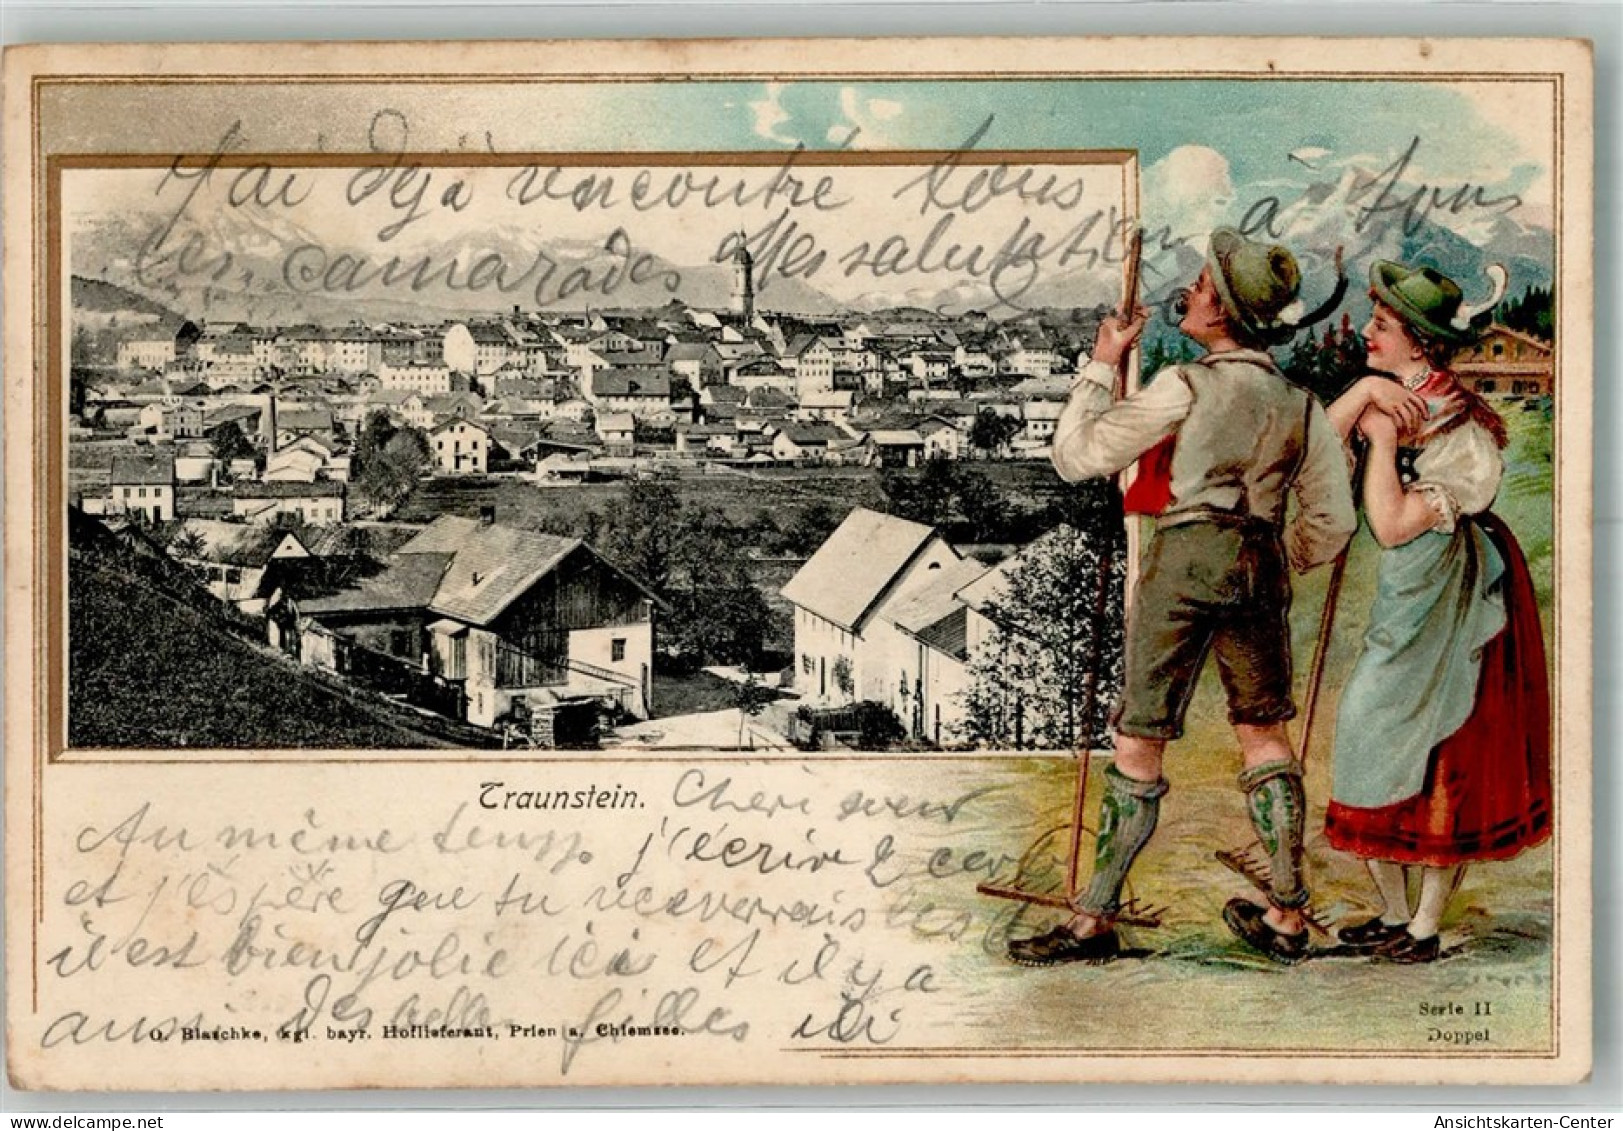 J'ai deja rencontré tous
les camarades salutation à tous
Traunstein.
Chèri
Au même temps j'écrire 2
et j'éspère que tu
il est bien jolie ici et il y a
ausi des belle filles ici
O. Blaschke, kgl. bayr. Hoflieferant, Prien a. Chiemsee.
Serie II
Doppel
AnsichtsKarten-Center